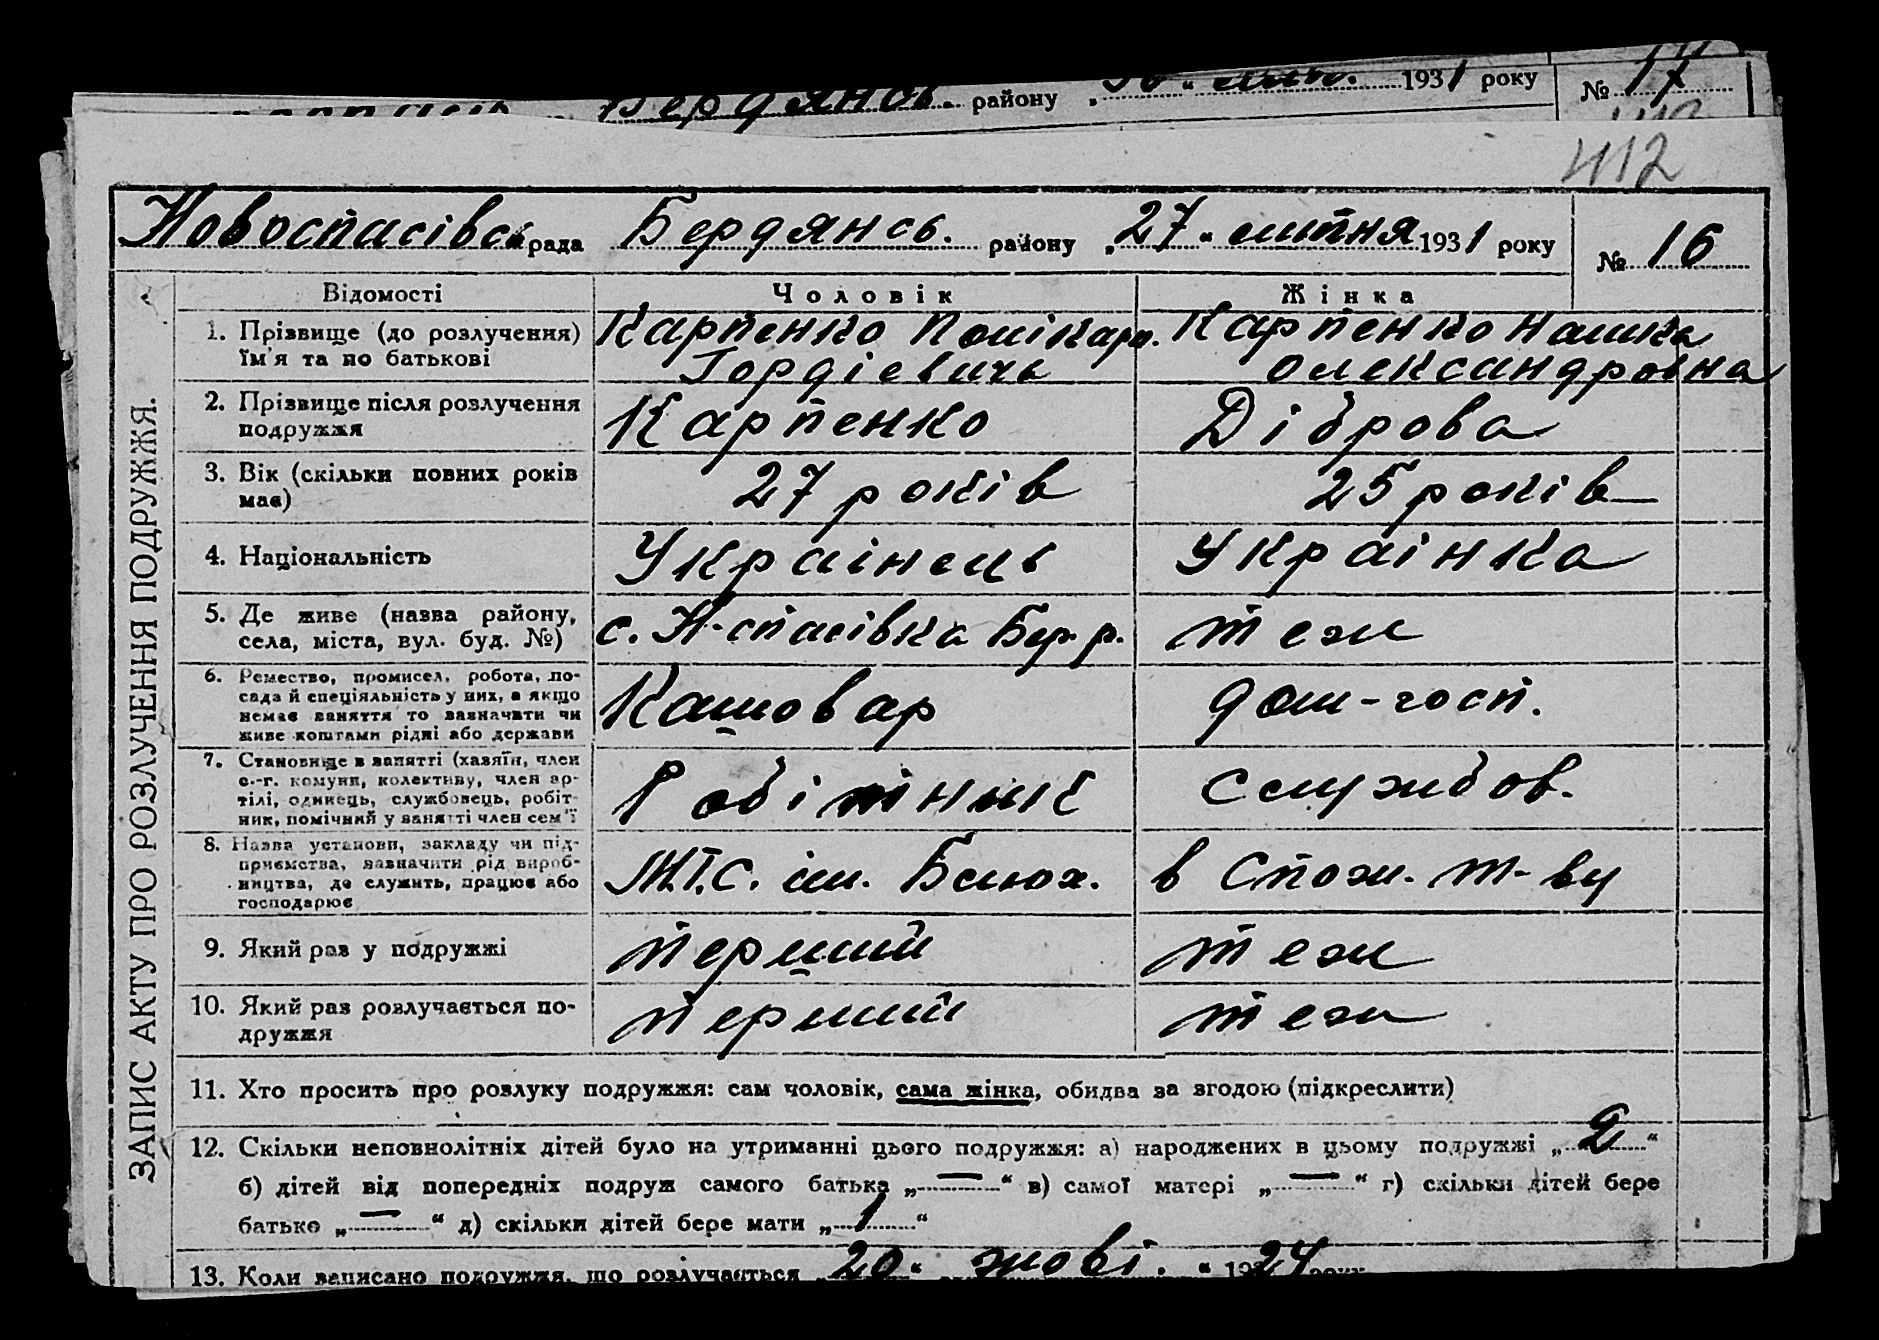 Бердянсь. району 1931 року № 17
412
Новоспасівсь рада Бердянсь. району „27“ липня 1931 року № 16
Відомості Чоловік Жінка
1. Прізвище (до розлучення) їм'я та по батькові
Карпенко Полікарп. Гордіевичь
Карпенко Олександровна
2. Прізвище після розлучення подружжя
Карпенко
Діброва
3. Вік (скільки повних років має)
27 років
25 років
4. Національність
Украінець
Украінка
5. Де живе (назва району, села, міста, вул. буд. №)
с. Н-спасівка Бер. р.
теж
6. Ремество, промисел, робота, посада й спеціяльність у них, а якщо немає заняття то зазначити чи живе коштами рідні або держави
Кашовар
дом-госп.
7. Становище в занятті (хазяїн, член с.-г. комуни, колективу, член артілі, одинець, службовець, робітник, помічний у занятті член сем'ї
Робітник
Службов.
8. Назва установи, закладу чи підприємства, зазначити рід виробництва, де служить, працює або господарює
М.Т.С. ім. Блюх.
в Спож. т-ву
9. Який раз у подружжі
перший
теж
10. Який раз розлучається подружжя
перший
теж
11. Хто просить про розлуку подружжя: сам чоловік, сама жінка, обидва за згодою (підкреслити)
12. Скільки неповнолітніх дітей було на утриманні цього подружжя: а) народжених в цьому подружжі „2“
б) дітей від попередніх подруж самого батька „—“ в) самої матері „—“ г) скільки дітей бере
батько „—“ д) скільки дітей бере мати „1“
13. Коли записано подружжя, що розлучається „20. жовт. “ 1924 року
ЗАПИС АКТУ ПРО РОЗЛУЧЕННЯ ПОДРУЖЖЯ.